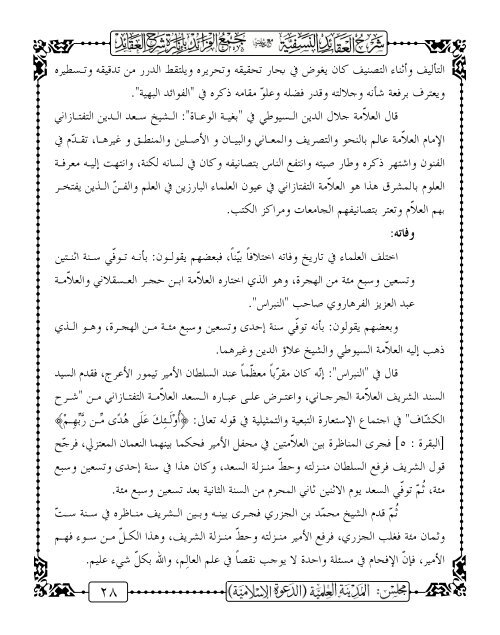 شرح العقائد النسفية مع جمع الفرائد بإنارة شرح العقائد
التأليف وأثناء التصنيف كان يغوض في بحار تحقيقه وتحريره ويلتقط الدرر من تدقيقه وتسطيره
ويعترف برفعة شأنه وجلالته وقدر فضله وعلوّ مقامه ذكره في "الفوائد البهية".
قال العلاّمة جلال الدين السيوطي في "بغية الوعاة": الشيخ سعد الدين التفتازاني
الإمام العلامة عالم بالنحو والتصريف والمعاني والبيان و الأصلين والمنطق و غيرهما، تقدّم في
الفنون واشتهر ذكره وطار صيته وانتفع الناس بتصانيفه وكان في لسانه لكنة، وانتهت إليه معرفة
العلوم بالمشرق هذا هو العلاّمة التفتازاني في عيون العلماء البارزين في العلم والفنّ الذين يفتخر
بهم العلاّم وتعتر بتصانيفهم الجامعات ومراكز الكتب.
وفاته:
اختلف العلماء في تاريخ وفاته اختلافاً بيّناً، فبعضهم يقولون: بأنه توفّي سنة اثنتين
وتسعين وسبع مئة من الهجرة، وهو الذي اختاره العلامة ابن حجر العسقلاني والعلامة
عبد العزيز الفرهاروي صاحب "النبراس".
وبعضهم يقولون: بأنه توفّي سنة إحدى وتسعين وسبع مئة من الهجرة، وهو الذي
ذهب إليه العلامة السيوطي والشيخ علاؤ الدين وغيرهما.
قال في "النبراس": إنّه كان مقرّباً معظّماً عند السلطان الأمير تيمور الأعرج، فقدم السيد
السند الشريف العلامة الجرجاني، واعترض على عباره السعد العلامة التفتازاني من "شرح
الكشّاف" في اجتماع الإستعارة التبعية والتمثيلية في قوله تعالى: ﴿أُوْلَـئِكَ عَلَى هُدًى مِّن رَّبِّهِمْ﴾
[البقرة : ٥] فجرى المناظرة بين العلاّمتين في محفل الأمير فحكما بينهما النعمان المعتزلي، فرجّح
قول الشريف فرفع السلطان منـزلته وحطّ منـزلة السعد، وكان هذا في سنة إحدى وتسعين وسبع
مئة، ثُمّ توفّي السعد يوم الاثنين ثاني المحرم من السنة الثانية بعد تسعين وسبع مئة.
ثُمّ قدم الشيخ محمّد بن الجزري فجرى بينه وبين الشريف مناظره في سنة ستّ
وثمان مئة فغلب الجزري، فرفع الأمير منـزلته وحطّ منـزلة الشريف، وهذا الكلّ من سوء فهم
الأمير، فإنّ الإفحام في مسئلة واحدة لا يوجب نقصاً في علم العالِم، والله بكلّ شيء عليم.
مجلس: المدينة العلمية (الدعوة الإسلامية)
٢٨